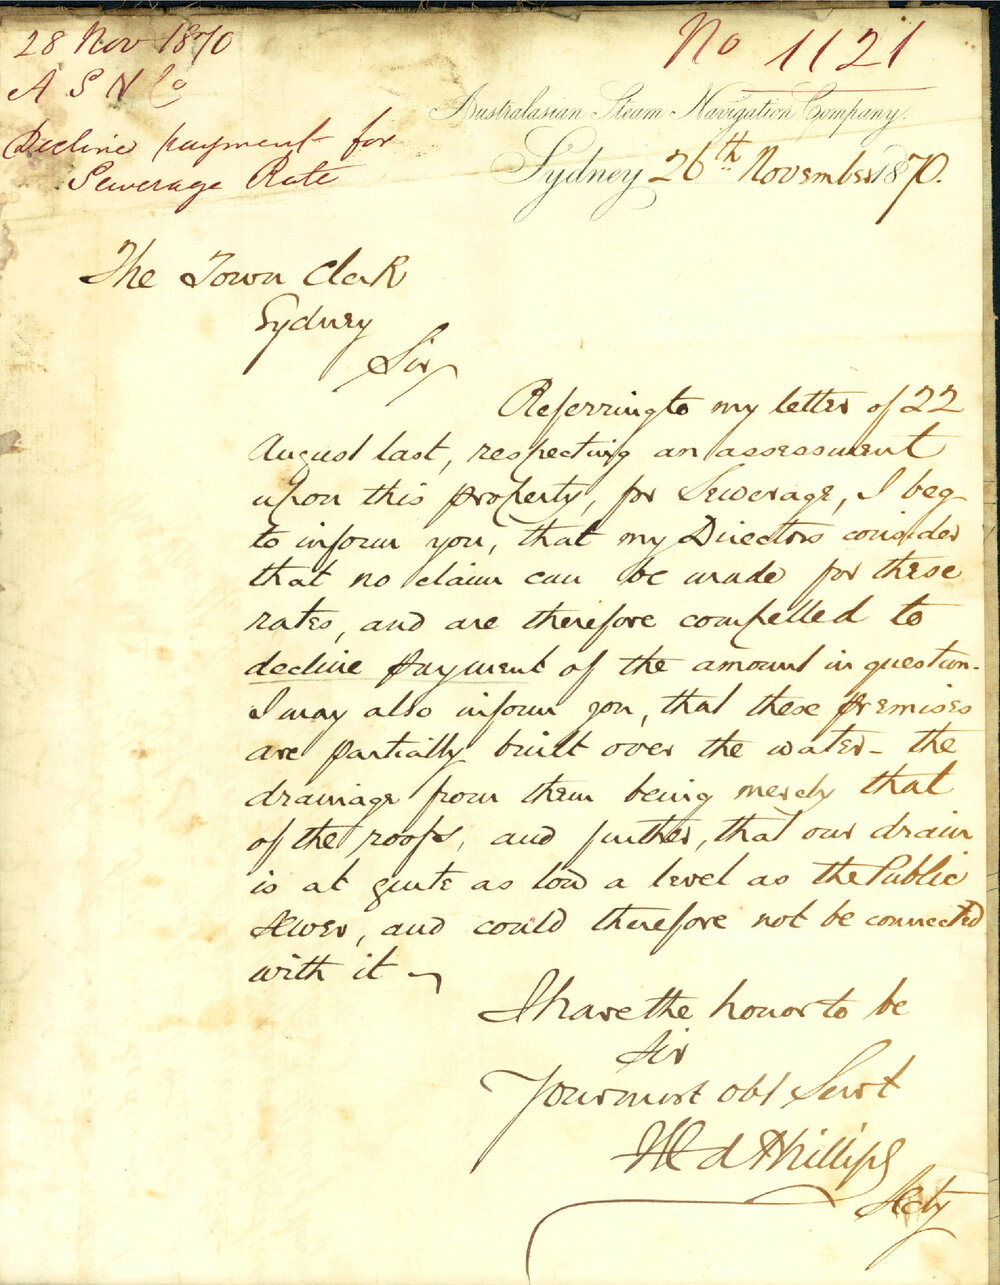 28 Nov 1870
A S N Co
Decline payment for
Sewerage Rate
No 1121
Australasian Steam Navigation Company.
Sydney 26th November 1870.
The Town Clerk
Sydney
Sir
Referring to my letter of 22
August last, respecting an assessment
upon this property, for Sewerage, I beg
to inform you, that my Directors consider
that no claim can be made for these
rates, and are therefore compelled to
decline payment of the amount in question.
I may also inform you, that these premises
are partially built over the water - the
drainage from them being merely that
of the roofs, and further, that our drain
is at quite as low a level as the Public
Sewer, and could therefore not be connected
with it
I have the honor to be
Sir
Your most obt Servt
Phillips
Secty